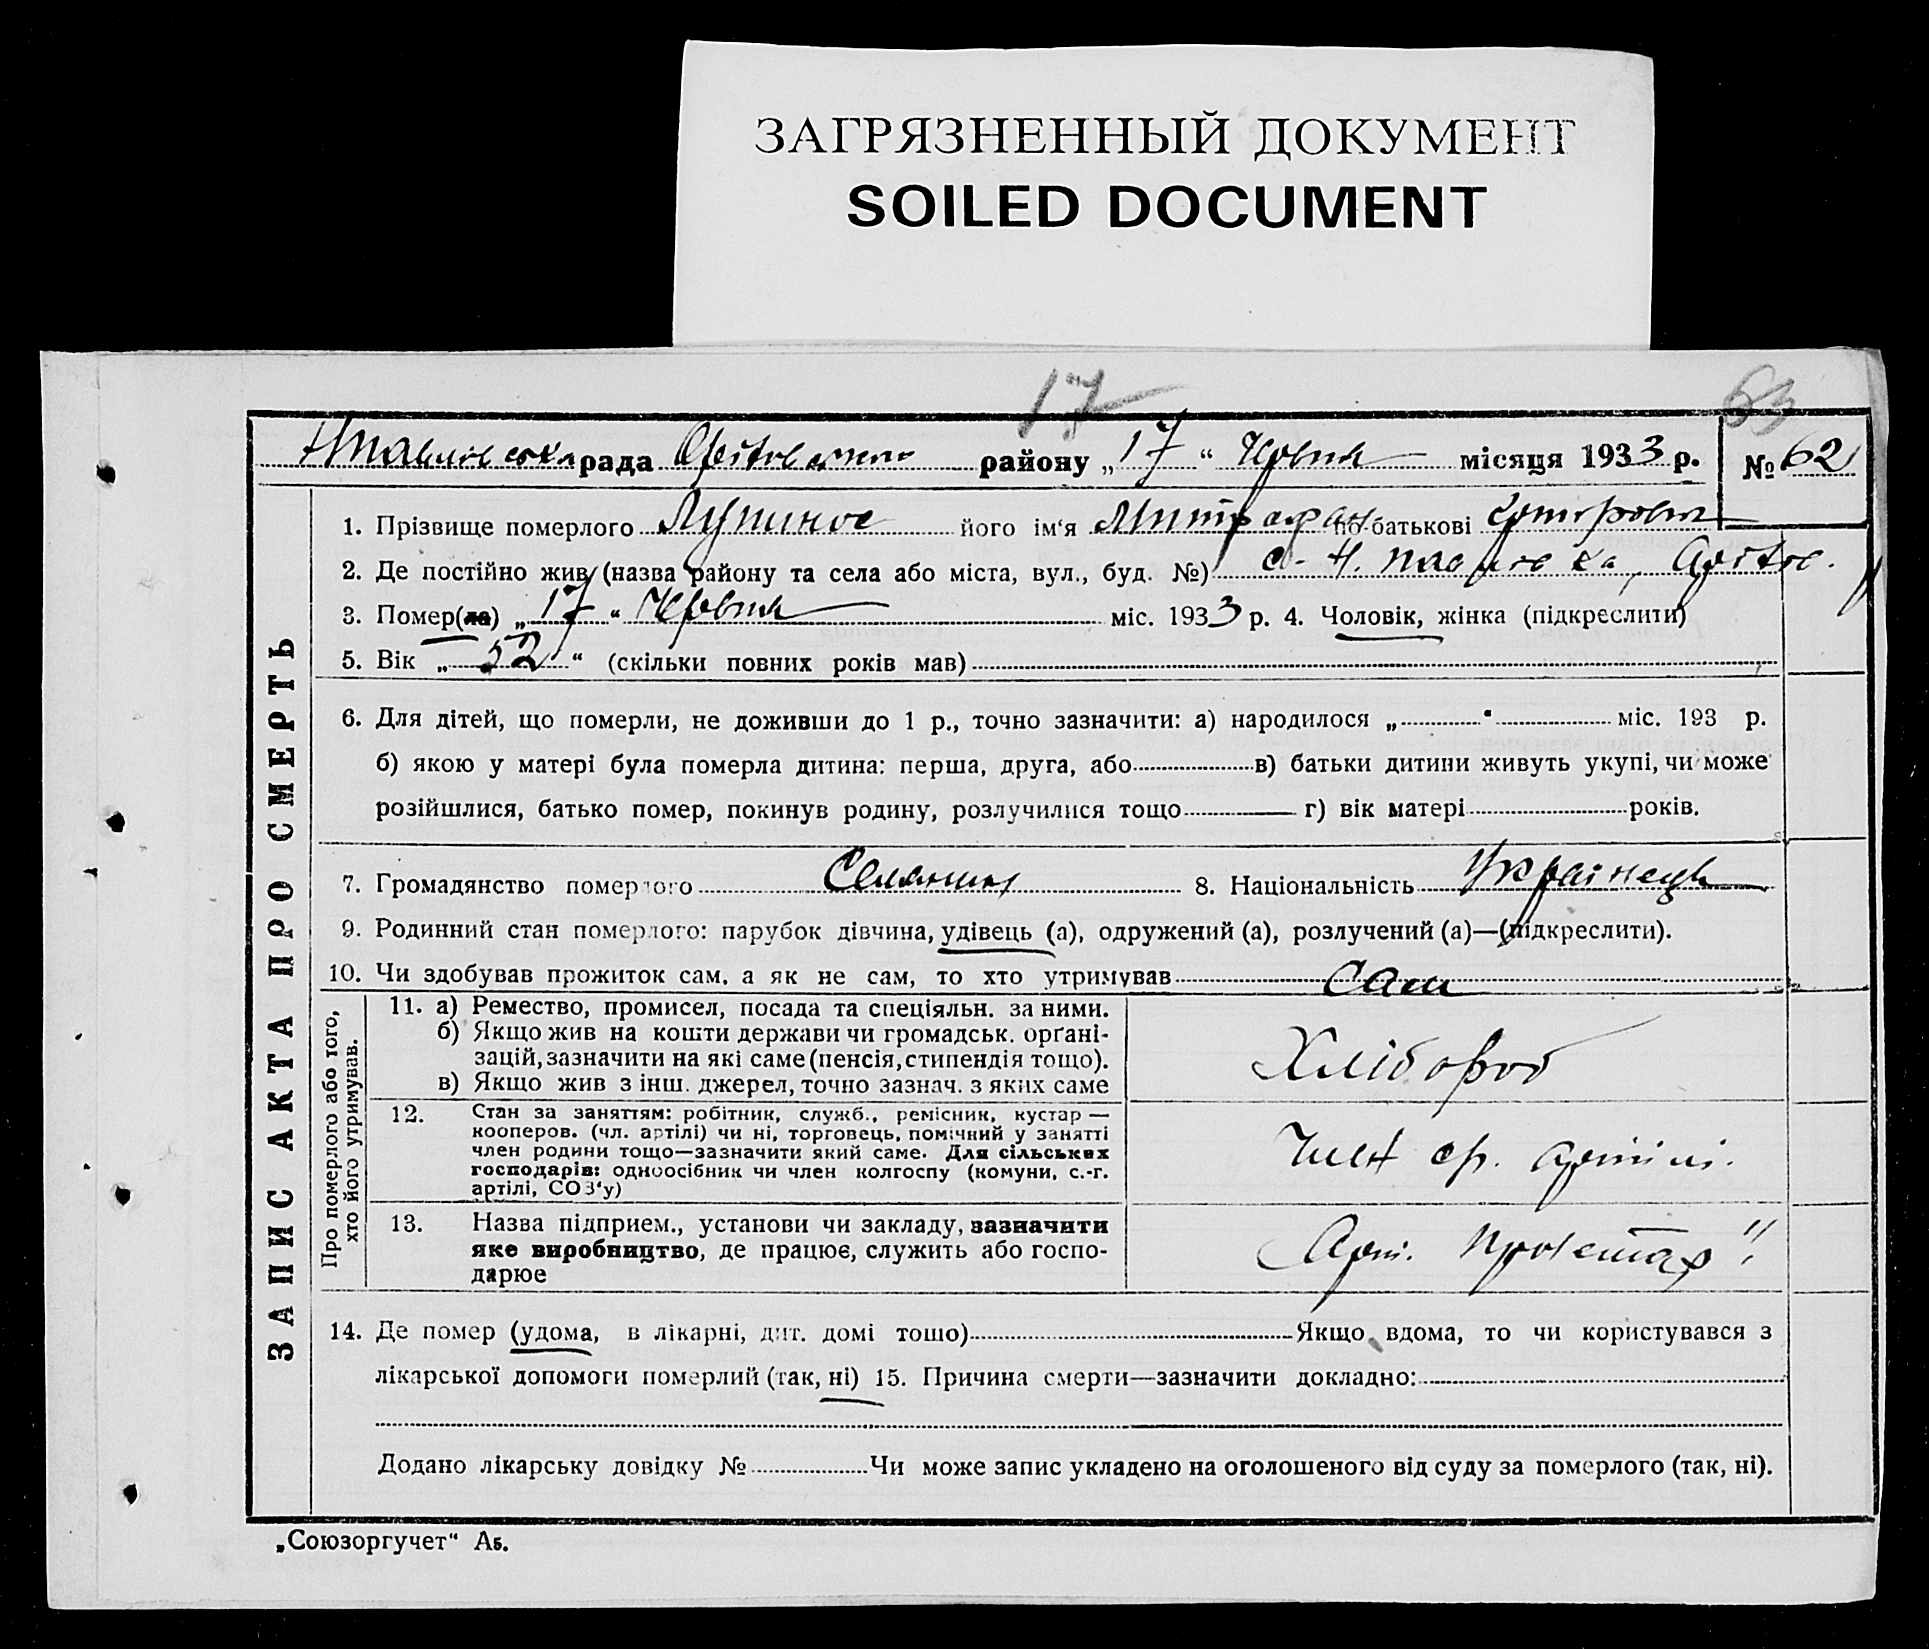 ЗАГРЯЗНЕННЫЙ ДОКУМЕНТ
SOILED DOCUMENT
17
63
рада району „17“ Червня місяця 1933 р. № 62
1. Прізвище померлого його ім‘я Митрофан по-батькові
2. Де постійно жив (назва району та села або міста, вул., буд. №) с. Н. Павловка,
3. Помер(ла) „17“ Червня міс. 1933 р. 4. Чоловік, жінка (підкреслити)
5. Вік „52“ (скільки повних років мав)
6. Для дітей, що померли, не доживши до 1 р., точно зазначити: а) народилося „ “ міс. 193 р.
б) якою у матері була померла дитина: перша, друга, або в) батьки дитини живуть укупі, чи може
розійшлися, батько помер, покинув родину, розлучилися тощо г) вік матері років.
7. Громадянство померлого Селянин 8. Національність Українець
9. Родинний стан померлого: парубок дівчина, удівець (а), одружений (а), розлучений (а)—(підкреслити).
10. Чи здобував прожиток сам, а як не сам, то хто утримував Сам
ЗАПИС АКТА ПРО СМЕРТЬ
Про померлого або того,
хто його утримував.
11. а) Ремество, промисел, посада та спеціяльн. за ними.
б) Якщо жив на кошти держави чи громадськ. орґані-
зацій, зазначити на які саме (пенсія, стипендія тощо).
в) Якщо жив з інш. джерел, точно зазнач. з яких саме
Хлібороб
12. Стан за заняттям: робітник, служб., ремісник, кустар —
кооперов. (чл. артілі) чи ні, торговець, помічний у занятті
член родини тощо—зазначити який саме. Для сільських
господарів: одноосібник чи член колгоспу (комуни, с.-г.
артілі, СОЗ‘у)
Член ср. артілі.
13. Назва підприєм., установи чи закладу, зазначити
яке виробництво, де працює, служить або госпо-
дарює
Арт. Пролетар"
14. Де помер (удома, в лікарні, дит. домі тощо) Якщо вдома, то чи користувався з
лікарської допомоги померлий (так, ні) 15. Причина смерти—зазначити докладно:
Додано лікарську довідку № Чи може запис укладено на оголошеного від суду за померлого (так, ні).
„Союзоргучет“ Аб.